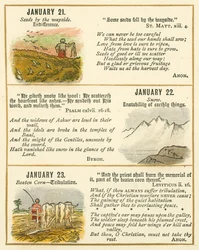 JANUARY 21.
Seeds by the wayside.
Indifference.
"Some seeds fell by the wayside."
St. Matt. xiii. 4
We can never be too careful
What the seed our hands shall sow;
Love from love is sure to ripen,
Hate from hate is sure to grow.
Seeds of good or ill we scatter
Heedlessly along our way;
But a glad or grievous fruitage
Waits us at the harvest day.
Anon.
JANUARY 22.
Snow.
Instability of earthly things.
Psalm cxlvii. 16-18.
And the widows of Ashur are loud in their
wail,
And the idols are broke in the temples of
Baal,
And the might of the Gentiles, unsmote by
the sword,
Hath vanished like snow in the glance of the
Lord.
Byron.
JANUARY 23.
Beaten Corn—Tribulation.
"And the priest shall burn the memorial of
it, part of the beaten corn thereof."
Leviticus ii. 16.
What, if thou always suffer tribulation,
And if thy Christian warfare never cease;
The gaining of the quiet habitation
Shall gather thee to everlasting peace.
The captive's oar may pause upon the galley,
The soldier sleep beneath his plumed crest,
And peace may fold her wings o'er hill and
valley,
But thou, O Christian, must not take thy
rest.
Anon.